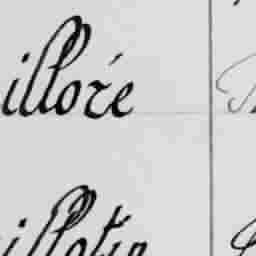 illoré
illotin